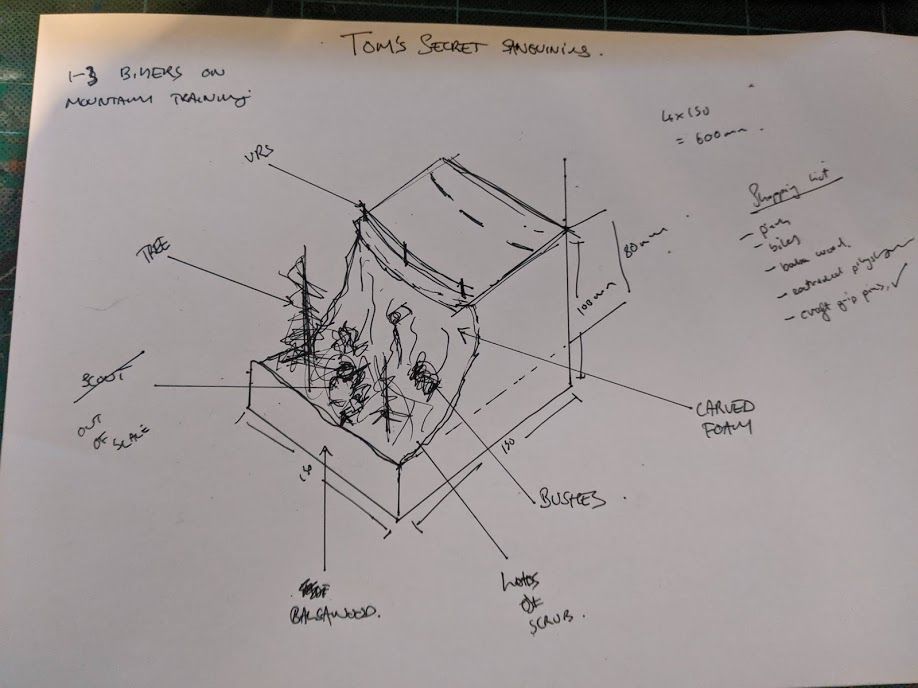 TOM'S SECRET
1-3 BIKERS ON
MOUNTAIN TRAINING
4x150
= 600mm.
URS
Shopping list
- bikes
- balsa wood.
- craft grip pins. ✓
TREE
80mm
100mm
SCOUT
OUT
OF SCALE
CARVED
FOAM
150
BUSHES.
BALSAWOOD.
LOADS
OF
SCRUB.